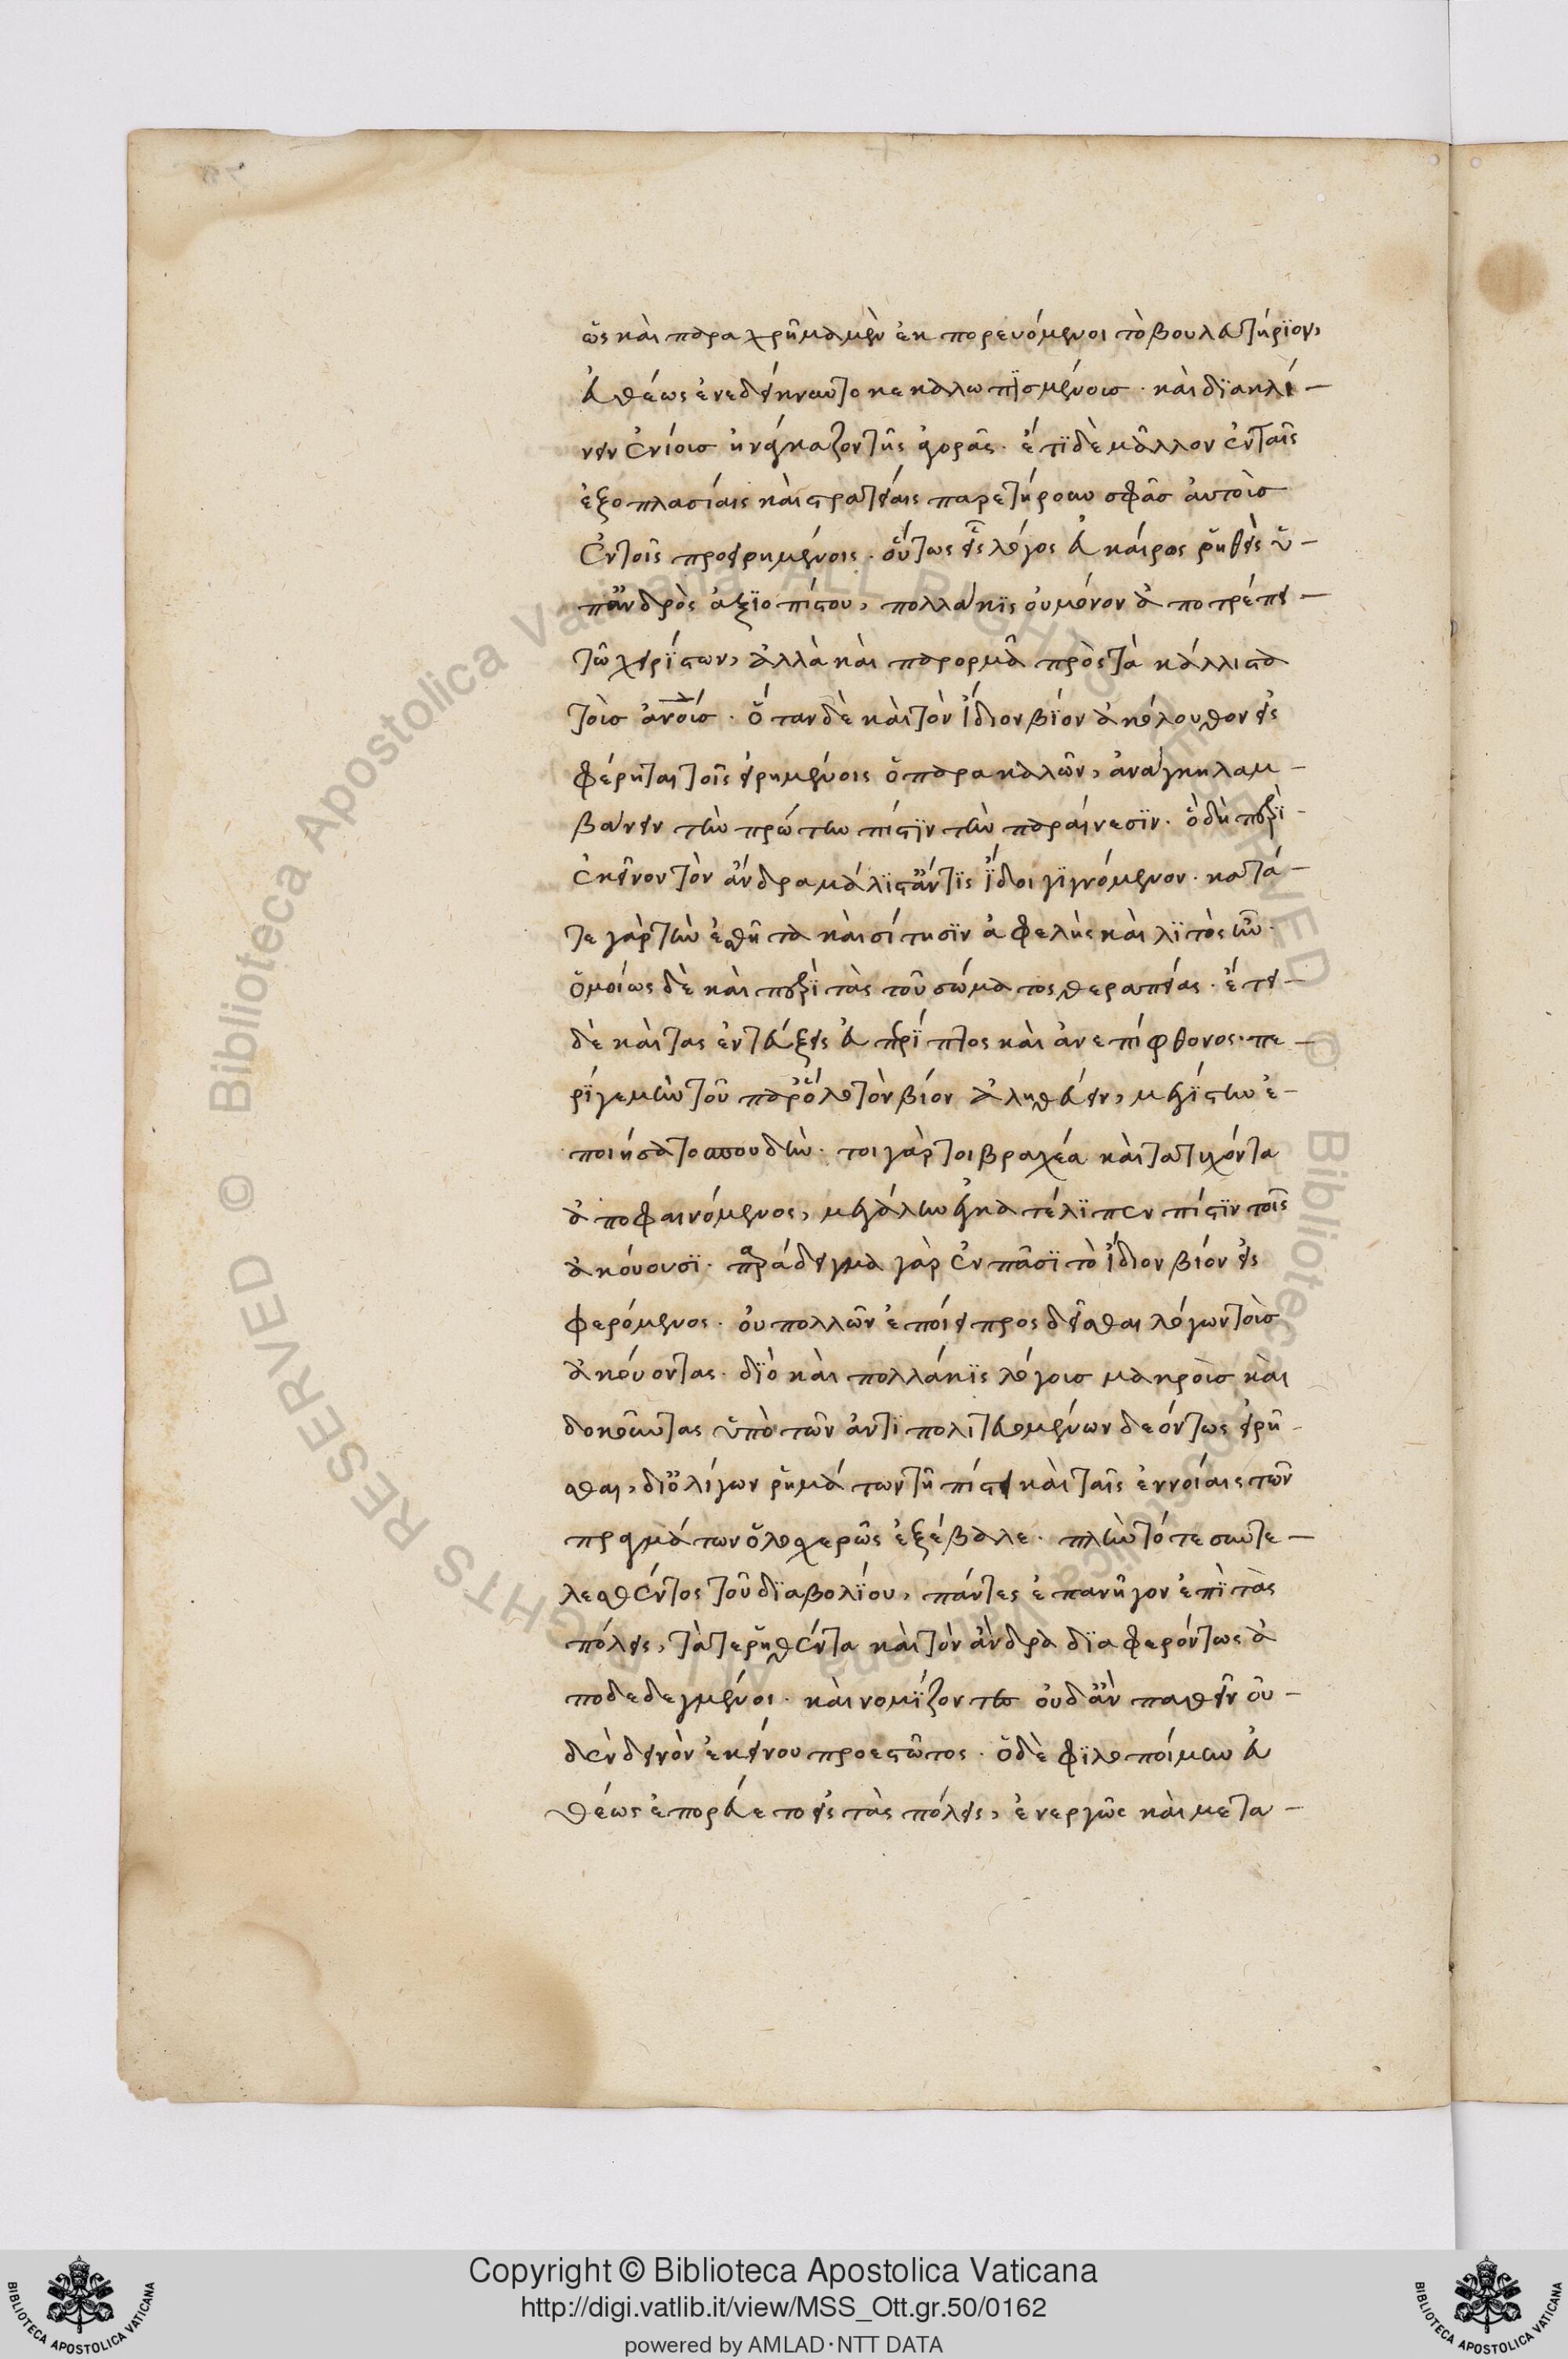 ὥς καὶ παρα χρῆμα μὲν ἐκ πορευόμενοι τὸ βουλευτήριον,
εὐθέως ἐνεδείκναυτο κεκαλωπϊσμένοισ. καὶ δϊακλί-
νειν ἐνίοισ ἠνάγκαζον τῆς φορᾶς. ἔτϊ δὲ μᾶλλον ἐν ταῖς
ἐξοπλασίαις καὶ στρατείαις παρετήρουν σφᾶσ αὐτοὶσ
ἐν τοῖς προειρημένοις. οὕτως εἷς λόγος εὐκαίρως ῥηθεὶς ὑ-
π' ἀνδρὸς ἀξϊοπίστου, πολλάκϊς οὐ μόνον ἀποτρέπει
τῶ χειρϊστων, ἀλλὰ καὶ παρορμᾶ πρὸς τὰ κάλλιστα
τοὶσ ἀνοίσ. ὅταν δὲ καὶ τὸν ἴδιον βϊον ἀκόλουθον εἰς
φέρηται τοῖς εἰρημένοις ὁ παρακαλῶν, ἀνάγκη λαμ-
βάνειν τὴν πρώτην πίστϊν τὴν παραίνεσϊν. ὃ δὴ περὶ
ἐκεῖνον τὸν ἄνδρα μάλϊστ' ἄν τϊς ἴδοι γϊγνόμενον. κατά
τε γὰρ τὴν ἐσθῆτα καὶ σίτησϊν ἀφελὴς καὶ λϊτὸς ἦν.
ὁμοίως δὲ καὶ περὶ τὰς τοῦ σώματος θεραπείας. ἔτει
δὲ καὶ τας ἐντεύξεις εὐπερίπτος καὶ ἀνεπίφθονος. πε-
ρί γε μὴν τοῦ παρ' ὅλο τὸν βίον ἀληθεύειν, μεγίστην ἐ-
ποιήσατο σπουδὴν. τοιγὰρτοι βραχέα καὶ τα τυχόντα
ἀποφαινόμενος, μεγάλην ἐγκατέλϊπεν πίστϊν τοῖς
ἀκόυουσϊ. παράδειγμα γὰρ ἐν πᾶσϊ τὸ ἴδιον βιόν εἰς
φερόμενος. οὐ πολλῶν ἐποίει προσδεῖσθαι λόγων τοὶσ
ἀκούοντας. δϊὸ καὶ πολλάκϊς λόγοισ μακροὶσ καὶ
δοκοῦντας ὑπὸ τῶν ἀντϊπολιτευομένων δεόντως εἰρῆ-
σθαι, δι' ὀλίγων ῥημάτων τῆ πίστει καὶ ταῖς ἐννοίαις τῶν
πραγμάτων ὁλοσχερῶς ἐξέβαλε. πλὴν τότε συντε-
λεσθέντος τοῦ δϊαβολϊου, πάντες ἐπανῆγον ἐπϊ τὰς
πόλεις, τά τε ῥηθέντα καὶ τὸν ἄνδρα δϊαφερόντως ἀ
ποδεδεγμένοι. καὶ νομϊζοντο οὐδ' ἂν παθεῖν οὐ-
δὲν δεινὸν ἐκείνου προεστῶτος. ὁ δὲ φϊλοποίμην εὐ
θέως ἐπορεύετο εἰς τὰς πόλεις, ἐνεργῶς καὶ μετα-
Copyright © Biblioteca Apostolica Vaticana
http://digi.vatlib.it/view/MSS_Ott.gr.50/0162
powered by AMLAD·NTT DATA